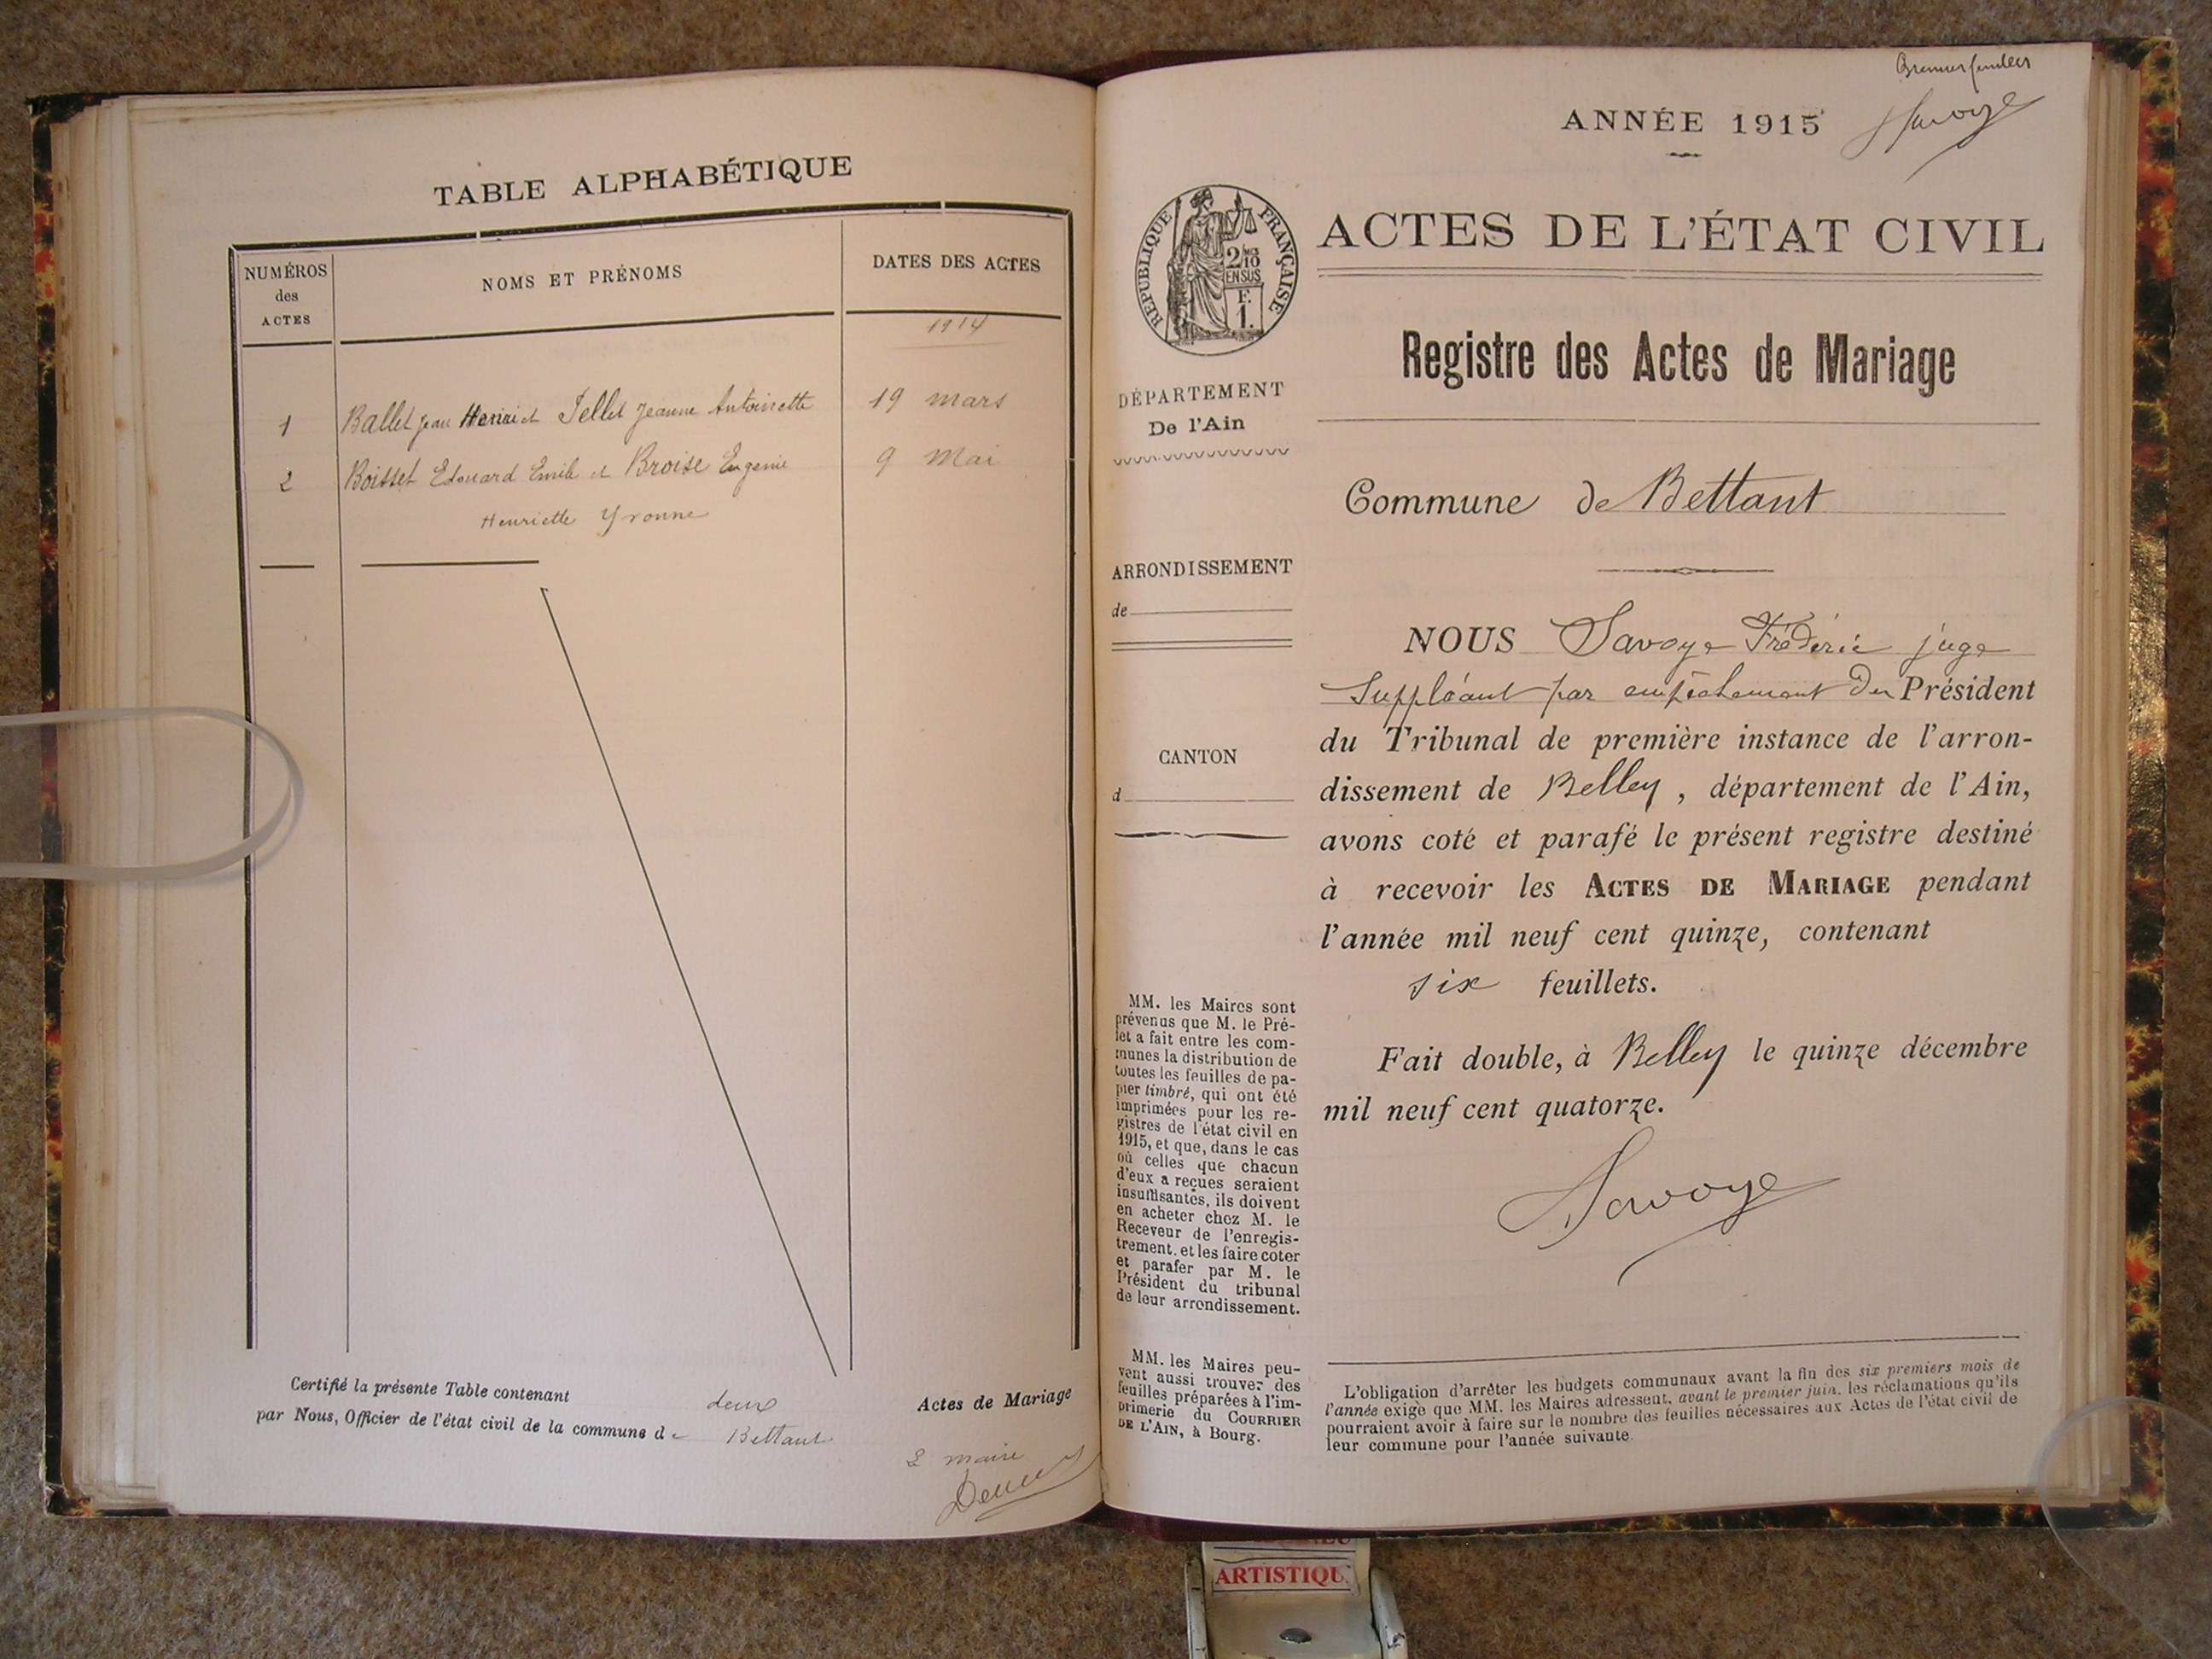 TABLE ALPHABÉTIQUE
NUMÉROS
des
ACTES
NOMS ET PRÉNOMS
DATES DES ACTES
1914
1 Ballet Jean Henri et Tellet Jeanne Antoinette 19 mars
2 Boisset Edouard Emile et Broise Eugenie 9 Mai
Henriette Yvonne
Certifié la présente Table contenant deux Actes de Mariage
par Nous, Officier de l'état civil de la commune de Bettant
maire
Premier feuillet
ANNÉE 1915
Savoye
RÉPUBLIQUE FRANÇAISE
2/10
EN SUS
F.
1.
ACTES DE L'ÉTAT CIVIL
Registre des Actes de Mariage
DÉPARTEMENT
De l'Ain
Commune de Bettant
ARRONDISSEMENT
de
CANTON
d
NOUS Savoye Frédéric juge
Suppléant par empêchement du Président
du Tribunal de première instance de l'arron-
dissement de Belley, département de l'Ain,
avons coté et parafé le présent registre destiné
à recevoir les ACTES DE MARIAGE pendant
l'année mil neuf cent quinze, contenant
six feuillets.
Fait double, à Belley le quinze décembre
mil neuf cent quatorze.
Savoye
MM. les Maires sont
prévenus que M. le Pré-
fet a fait entre les com-
munes la distribution de
toutes les feuilles de pa-
pier timbré, qui ont été
imprimées pour les re-
gistres de l'état civil en
1915, et que, dans le cas
où celles que chacun
d'eux a reçues seraient
insuffisantes, ils doivent
en acheter chez M. le
Receveur de l'enregis-
trement, et les faire coter
et parafer par M. le
Président du tribunal
de leur arrondissement.
MM. les Maires peu-
vent aussi trouver des
feuilles préparées à l'im-
primerie du COURRIER
DE L'AIN, à Bourg.
L'obligation d'arrêter les budgets communaux avant la fin des six premiers mois de
l'année exige que MM. les Maires adressent, avant le premier juin, les réclamations qu'ils
pourraient avoir à faire sur le nombre des feuilles nécessaires aux Actes de l'état civil de
leur commune pour l'année suivante.
ARTISTIQU